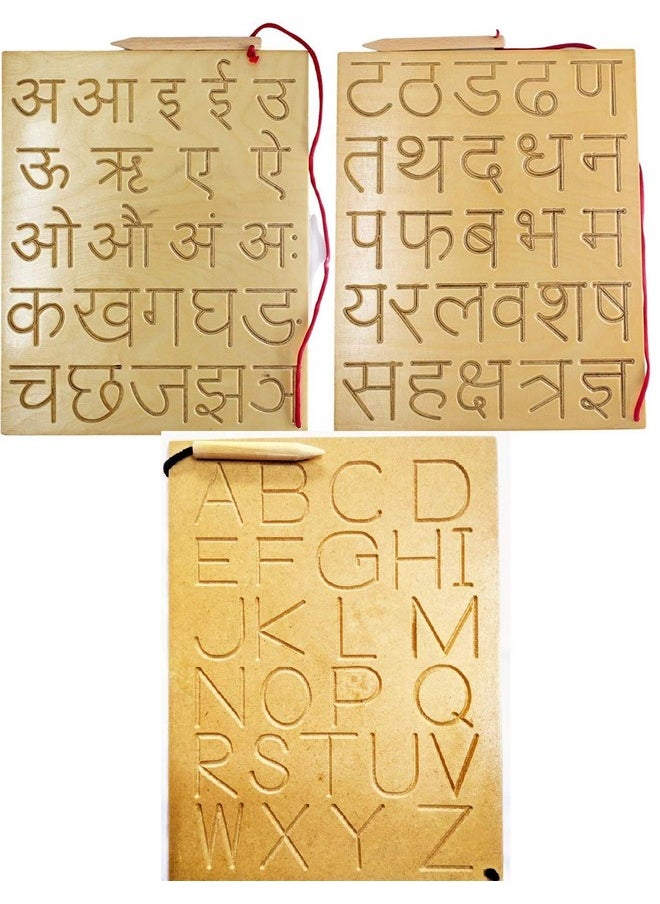 अ आ इ ई उ
ऊ ऋ ए ऐ
ओ औ अं अः
क ख ग घ ङ
च छ ज झ ञ
ट ठ ड ढ ण
त थ द ध न
प फ ब भ म
य र ल व श ष
स ह क्ष त्र ज्ञ
A B C D
E F G H I
J K L M
N O P Q
R S T U V
W X Y Z